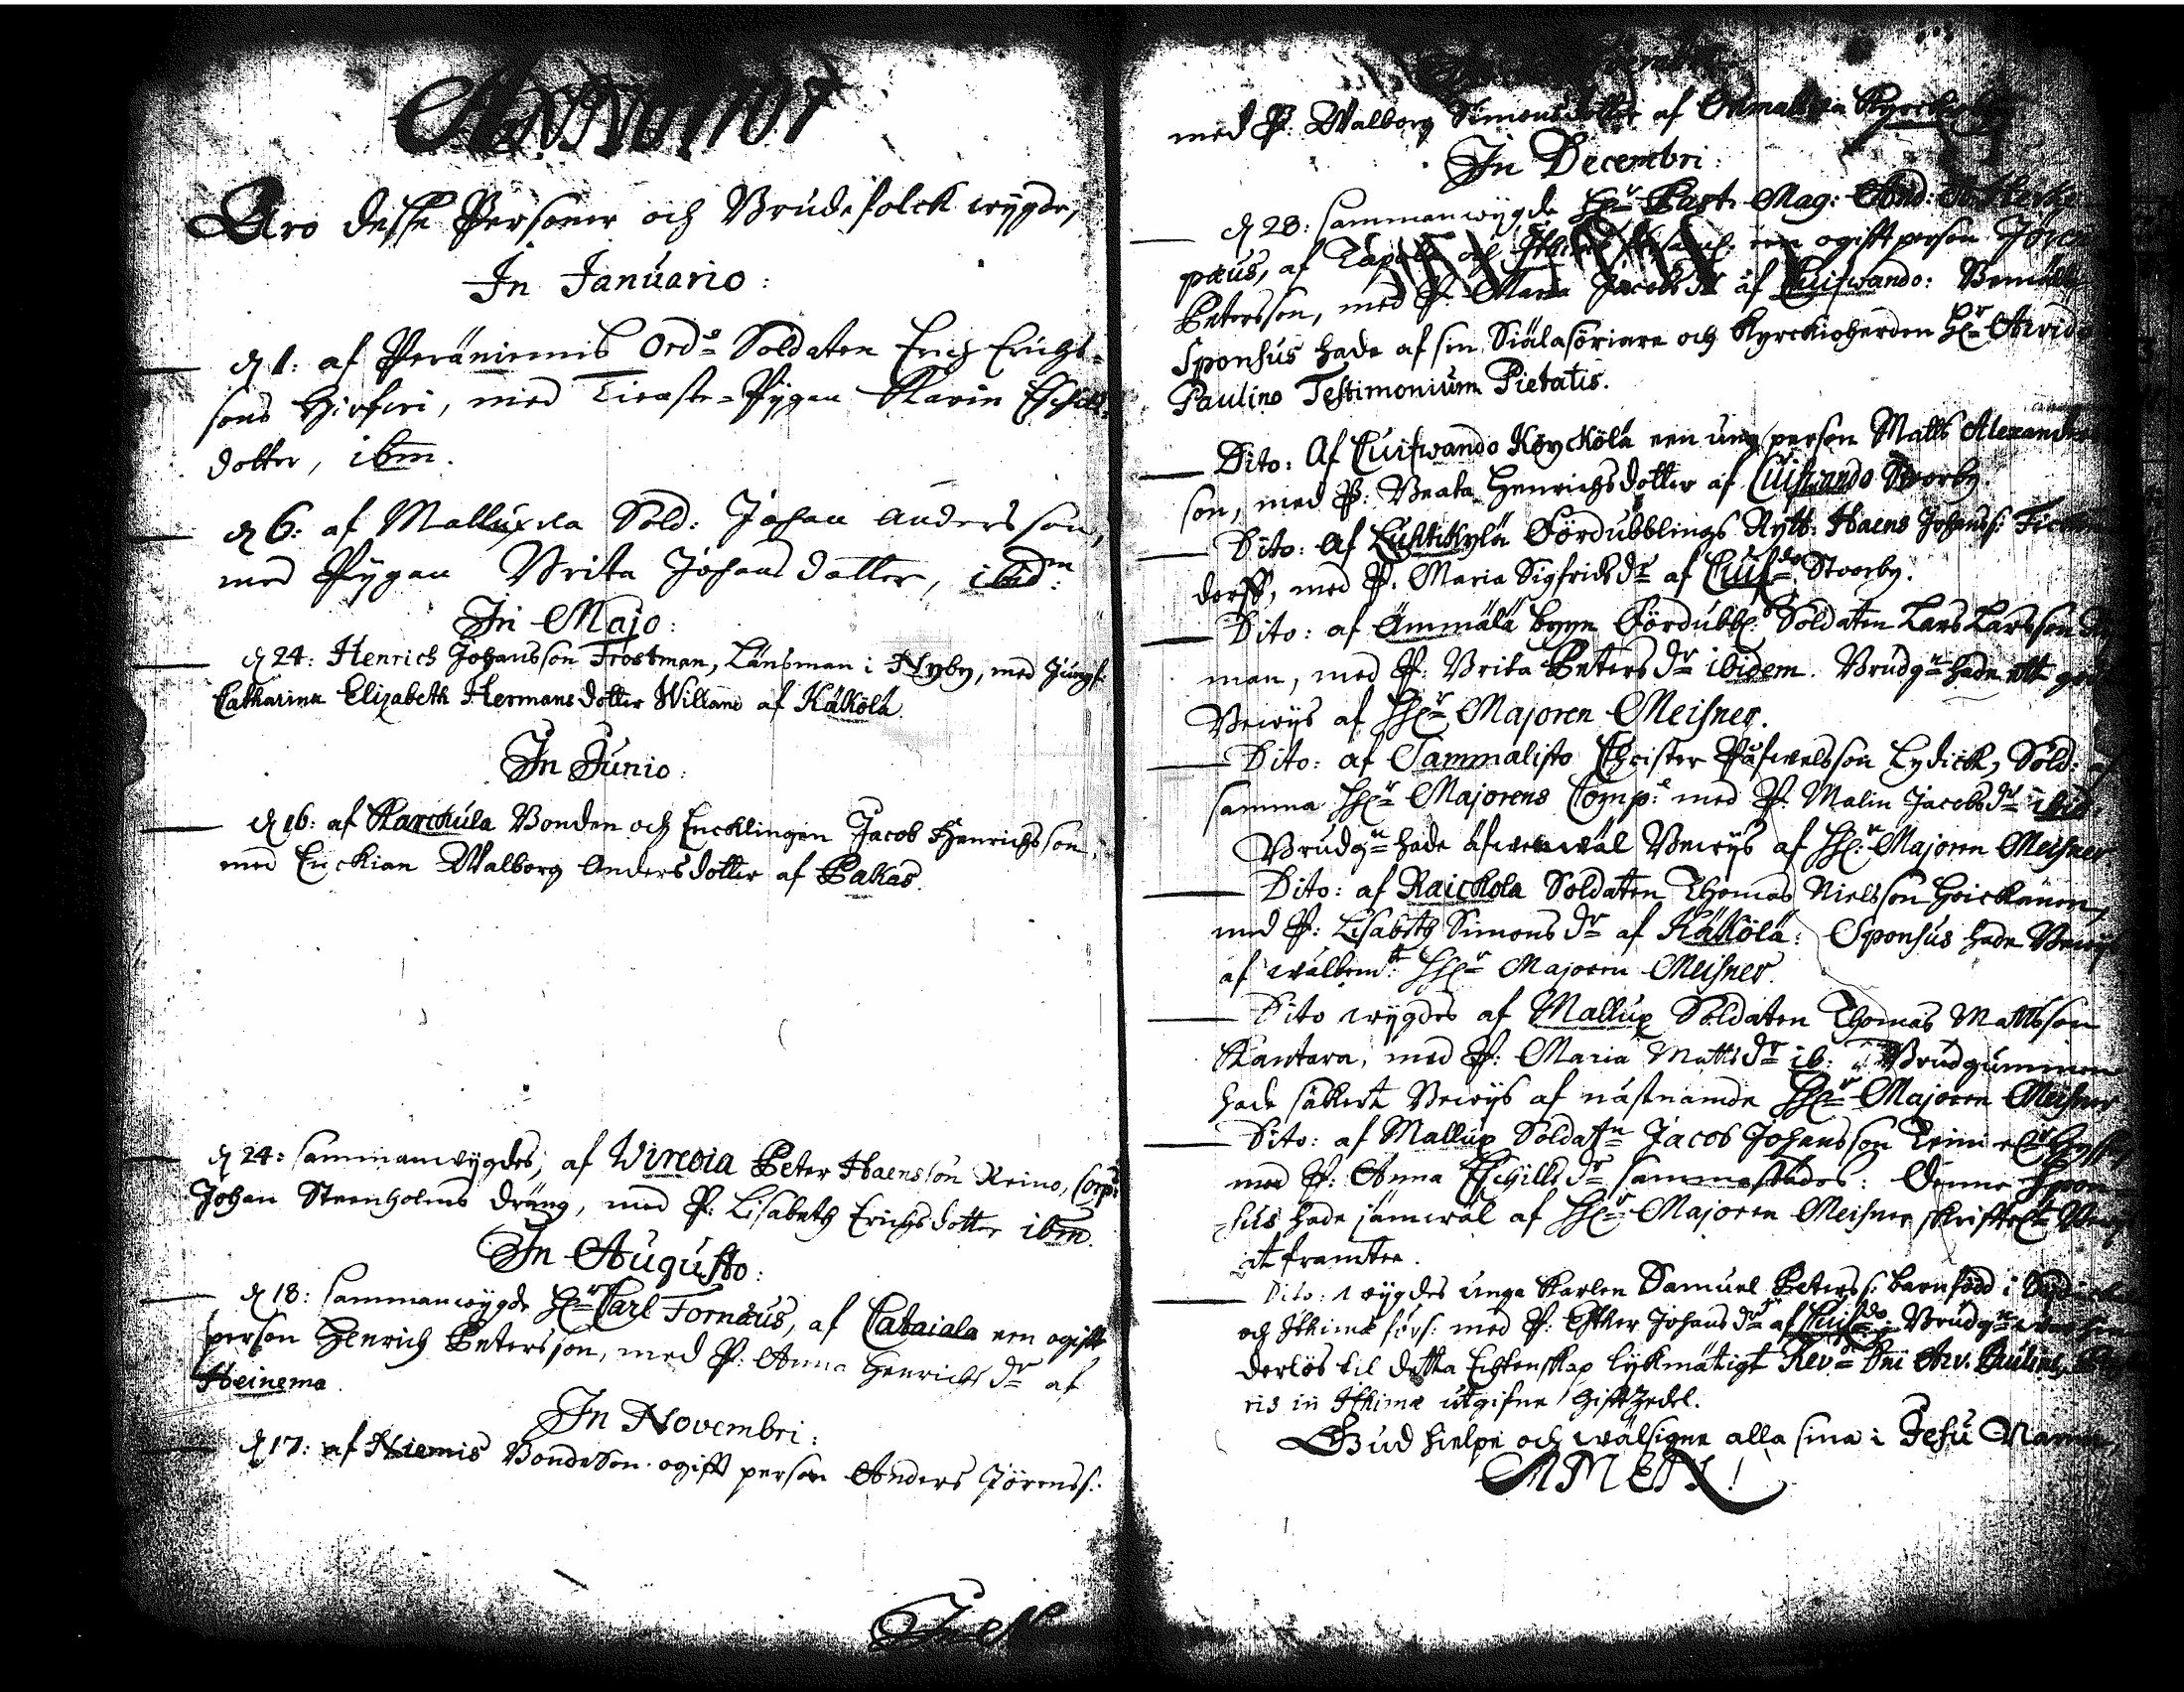 Äro desse Personer och Brudefolck wygde,
In Januario:
d 1: af Peräniemis Ord: Soldaten Erich Erichs-
sons Hirfwi, med Pygan Karin Eschills
dotter, ibm.
d 6: af Mallux Sold: Johan Andersson,
med Pygan Brita Johansdotter, ibid:
In Majo:
d 24: Henrich Johansson Frostman, Länsman i Nyby, med Jungf:
Catharina Elizabeth Hermansdotter Willand af Käköla.
In Junio:
d 16: af Karckula Bonden och Encklingen Jacob Henrichsson,
med Enckian Walborg Andersdotter af Pakas.
d 24: sammanwygdes, af Wirewia Peter Haensson Reino, Corp:
Johan Steenholms dräng, med P: Lisabeth Erichsdotter ibm.
In Augusto:
d 18: sammanwygde Hr Carl Fornæus, af een ogift
person Henrich Petersson, med P: Anna Henrichs dr af
Heinema.
In Novembri:
d 17: af Niemis Bondeson ogift person Anders Jörenss:
med P: Walborg Simonsdotter af
In Decembri:
d 28: sammanwygde Hr Past: Mag:
pæus, af och een ogift person Jören
Petersson, med P: Maria Jacobs dr af Cuifwando:
Sponsus hade af sin Siälasöriare och Kyrckioherden Hr Arvido
Paulino Testimonium Pietatis.
Dito: Af Cuifwando Köyckölä een ung person Matts Alexanders
son, med P: Beata Henrichsdotter af Cuifwando Stoorby.
Dito: af Luhtikylä Fördubblings Rytt: Haens Johanss:
dorff, med P: Maria Sigfrids dr af Cuif do Stoorby.
Dito: af Ämmälä byyn Fördubbl: Soldaten Lars Larsson
man, med P: Brita Peters dr ibidem. Brudgn hade ett godt
Bewijs af Hr Majoren Meisner.
Dito: af Sammalisto Christer Påfwelsson Lydick, Sold: af
samma Hr Majorens Comp: med P: Malin Jacobs dr ibid:
Brudgn hade äfwenwäl Bewijs af Hr Majoren Meisner
Dito: af Raickola Soldaten Thomas Nielsson Hoickainen,
med P: Lisabeth Simons dr af Käköla: Sponsus hade Bewijs
af wälbem:te Hr Majoren Meisner.
Dito wygdes af Mallux Soldaten Thomas Mattsson
Kantara, med P: Maria Matts dr ib: Brudgummen
hade säkert Bewijs af nästnämde Hr Majoren Meisner
Dito: af Mallux Soldatn Jacob Johansson
med P: Anna Eschills dr sammastädes: Denne Spon-
sus hade jämwäl af Hr Majoren Meisner skriftel:t Bewijs
at framtee.
Dito: wygdes unga Karlen Samuel Peterss: barnfödd i
och Ithimæ försl: med P: Esther Johans dr af Cuif do: Brudgn
derlös til detta Echtenskap lyckmätigt Rev:di Dni Arv. Paulini,
ris in Ithimæ utgifne Gifftzedel.
Gud hielpe och wälsigne alla sina i Jesu Namn,
AMEN!